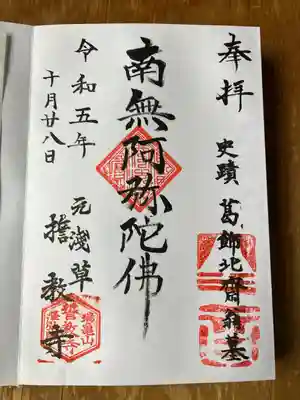 奉拝
史蹟 葛飾北齋翁墓
南無阿弥陀佛
令和五年
十月廿八日
元淺草
誓教寺